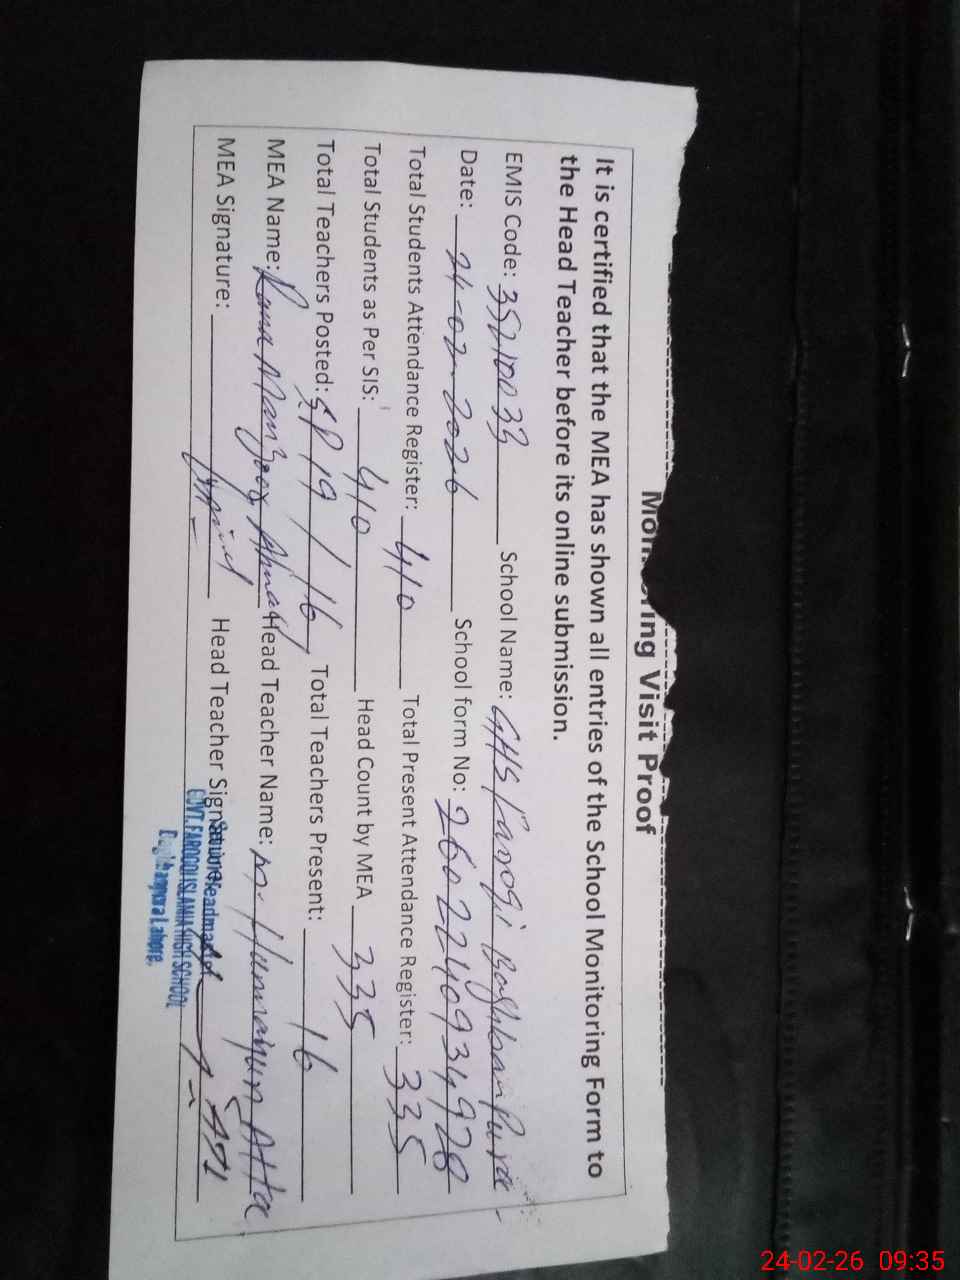 Monitoring Visit Proof
It is certified that the MEA has shown all entries of the School Monitoring Form to
the Head Teacher before its online submission.
EMIS Code: 35210033 School Name: GHS Farooqi Baghbanpura
Date: 24-02-2026 School form No: 2602240934920
Total Students Attendance Register: 410 Total Present Attendance Register: 335
Total Students as Per SIS: 410 Head Count by MEA 335
Total Teachers Posted: S.P 19 / 16 Total Teachers Present: 16
MEA Name: Rana Manzoor Ahmad Head Teacher Name: M. Humayun Atta
MEA Signature: Head Teacher Signature:
Senior Headmaster
GOVT. FAROOQI ISLAMIA HIGH SCHOOL
Baghbanpura Lahore.
24-02-26 09:35